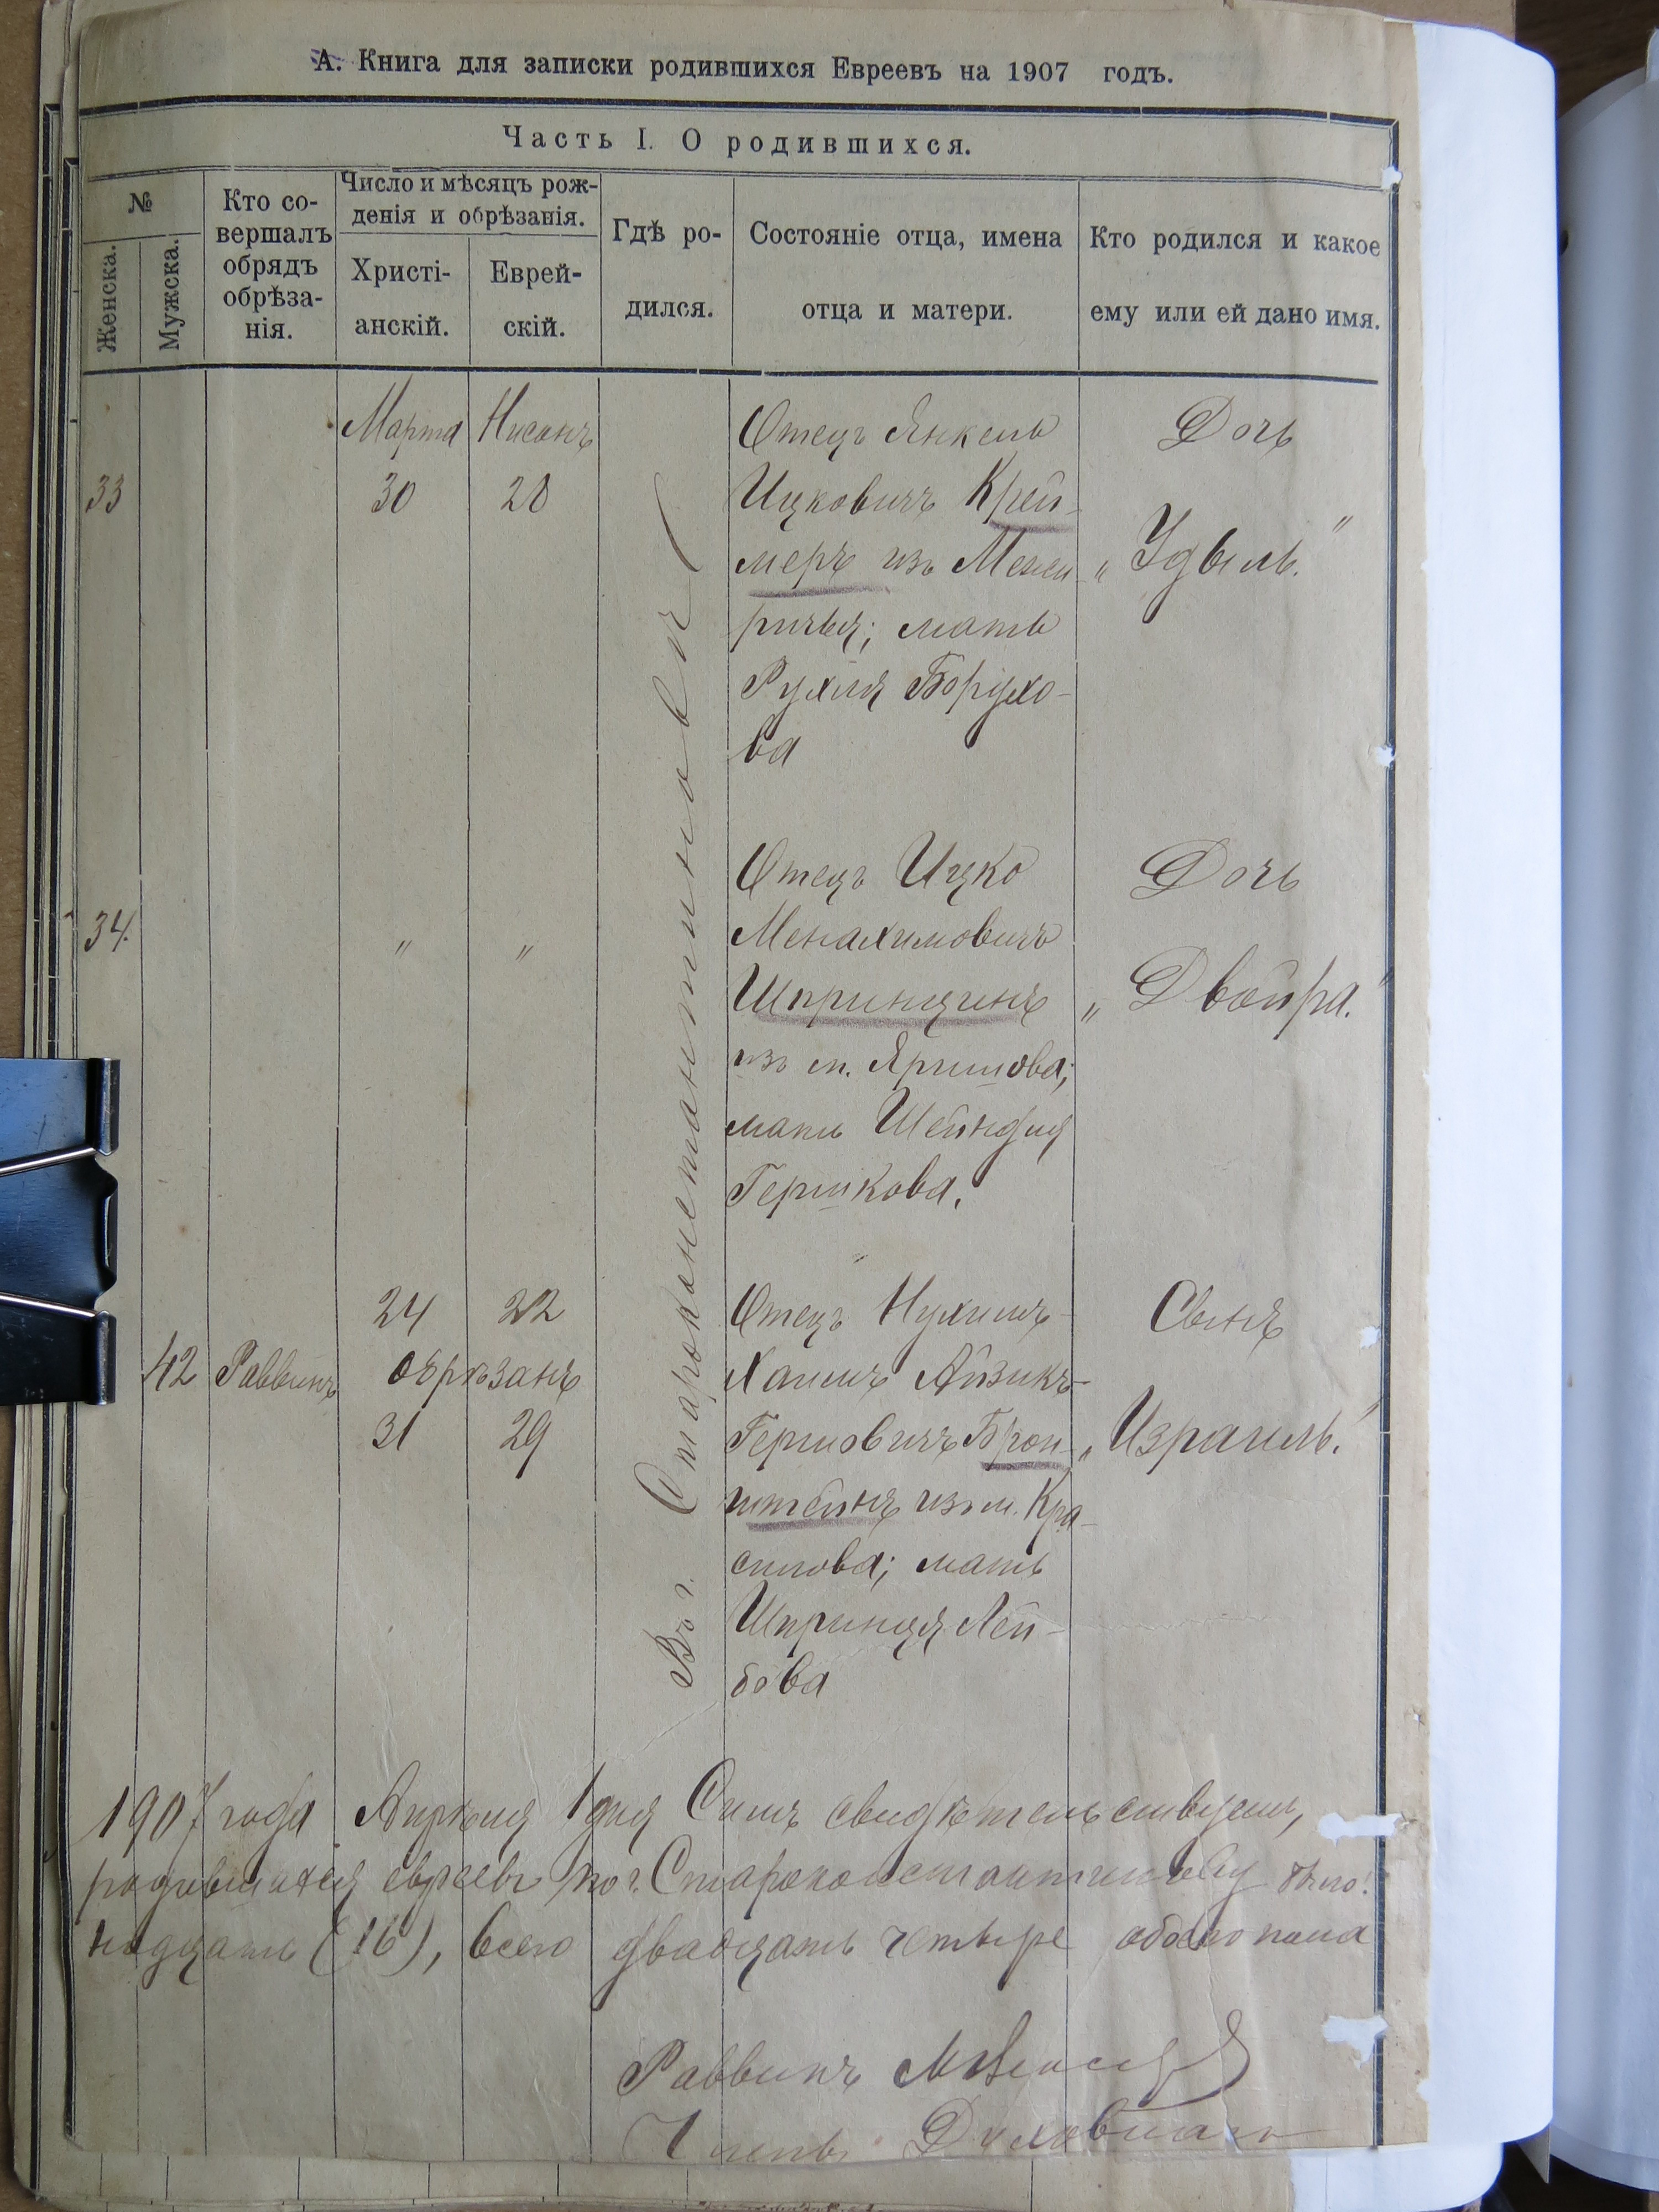 А. Книга для записки родившихся Евреевъ на 1907 годъ.
Часть I. О родившихся.
№
Женска.
Мужска.
Кто со-
вершалъ
обрядъ
обрѣза-
нія.
Число и мѣсяцъ рож-
денія и обрѣзанія.
Христі-
анскій.
Еврей-
скій.
Гдѣ ро-
дился.
Состояніе отца, имена
отца и матери.
Кто родился и какое
ему или ей дано имя.
Въ г. Староконстантиновѣ
33
Марта Нисанъ
30 28
Отецъ Янкель
Ицковичъ Крей-
меръ изъ Межи-
ричья; мать
Рухля Борухо-
ва
Дочь
„Удыль."
34.
" "
Отецъ Ицко
Менахимовичъ
Шпринцинъ
изъ м. Яришова;
мать Шейндля
Гершкова.
Дочь
„Двойра."
42 Раввинъ
24 22
обрѣзанъ
31 29
Отецъ Нухимъ-
Хаимъ Айзикъ-
Гершовичъ Брон-
штейнъ изъ м. Кра-
силова; мать
Шпринця Лей-
бова
Сынъ
„Израиль."
1907 года Апрѣля 1 дня Симъ свидѣтельствуемъ,
родившихся евреевъ по г. Староконстантинову было:
надцать (16), всего двадцать четыре обоего пола
Раввинъ
Членъ Духовнаго